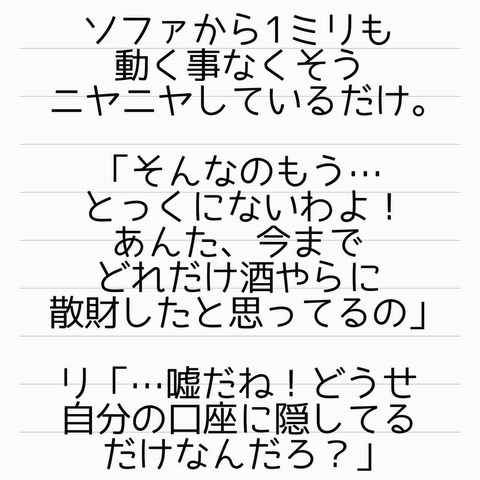 ソファから1ミリも
動く事なくそう
ニヤニヤしているだけ。
「そんなのもう…
とっくにないわよ！
あんた、今まで
どれだけ酒やらに
散財したと思ってるの」
リ「…嘘だね！どうせ
自分の口座に隠してる
だけなんだろ？」